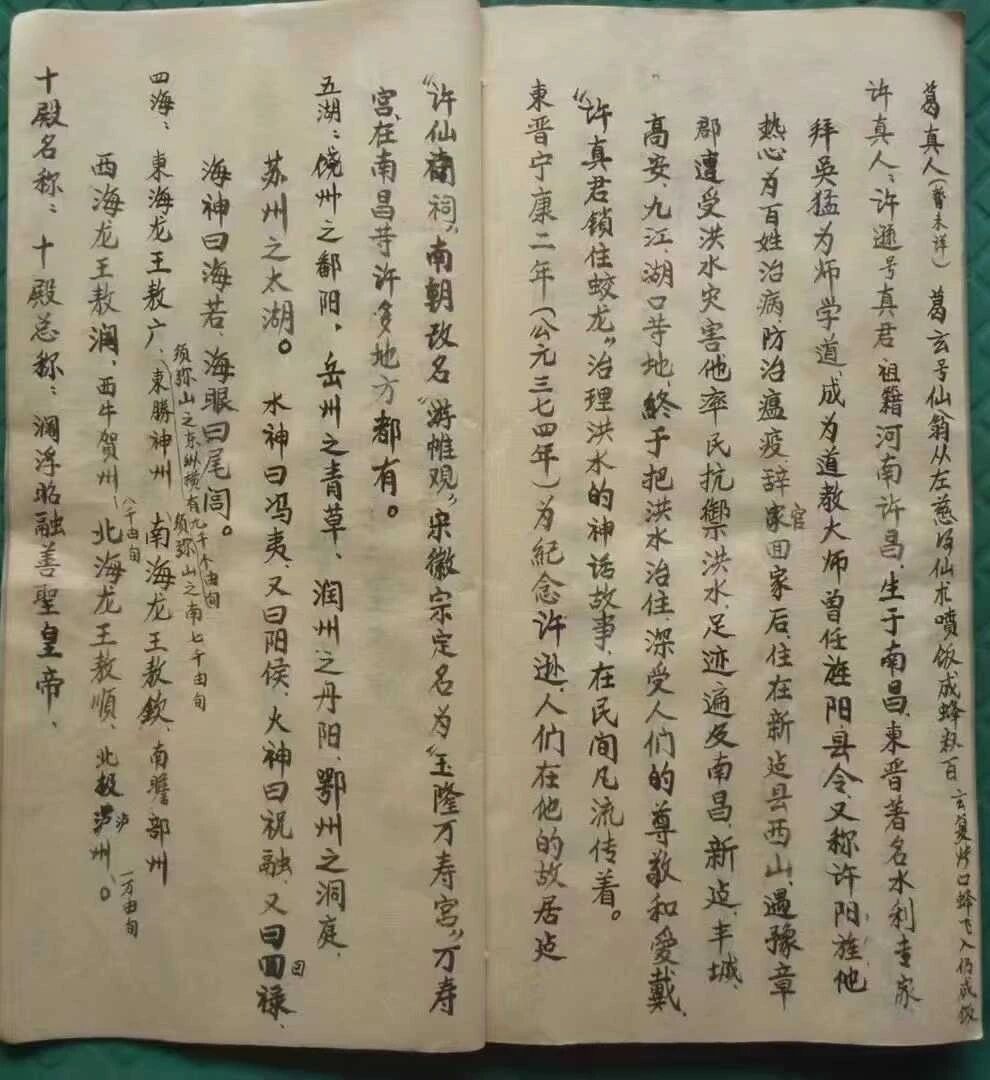 葛真人(暂未详) 葛玄号仙翁从左慈得仙术喷饭成蜂数百 玄复张口蜂飞入仍成饭
许真人:许逊号真君 祖籍河南许昌、生于南昌、東晋著名水利专家
拜吴猛为师学道、成为道教大师曾任旌阳、县令、又称许阳旌、他
热心为百姓治病、防治瘟疫、辞家官回家后、住在新建县西山、遇豫章
郡遭受洪水灾害他率民抗禦洪水、足迹遍及南昌、新建、丰城、
高安、九江、湖口等地、终于把洪水治住、深受人们的尊敬和爱戴、
“许真君锁住蛟龙”治理洪水的神话故事、在民间凡流传着。
東晋宁康二年(公元三七四年)为纪念许逊、人们在他的故居建
“许仙祠”、南朝改名“游帷观”、宋徽宗定名为“玉隆万寿宫”、万寿
宫、在南昌等许多地方都有。
五湖:饶州之鄱阳、岳州之青草、润州之丹阳、鄂州之洞庭、
苏州之太湖。 水神曰冯夷、又曰阳侯、火神曰祝融、又曰回禄、
海神曰海若、海眼曰尾闾。
四海:東海龙王敖广、東勝神州 须弥山之东纵横有九千个由旬 南海龙王敖欽、南瞻部州 须弥山之南七千由旬
西海龙王敖澜、西牛贺州、八千由旬 北海龙王敖順、北极泸州、。一万由旬
十殿名称:十殿总称:澜浮昭融善聖皇帝、